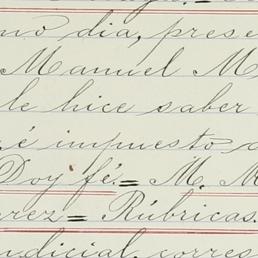 mo dia, prese
Manuel M
le hice saber
é impuesto
Doy fé.= M. M
rez= Rúbricas.
udicial, corres